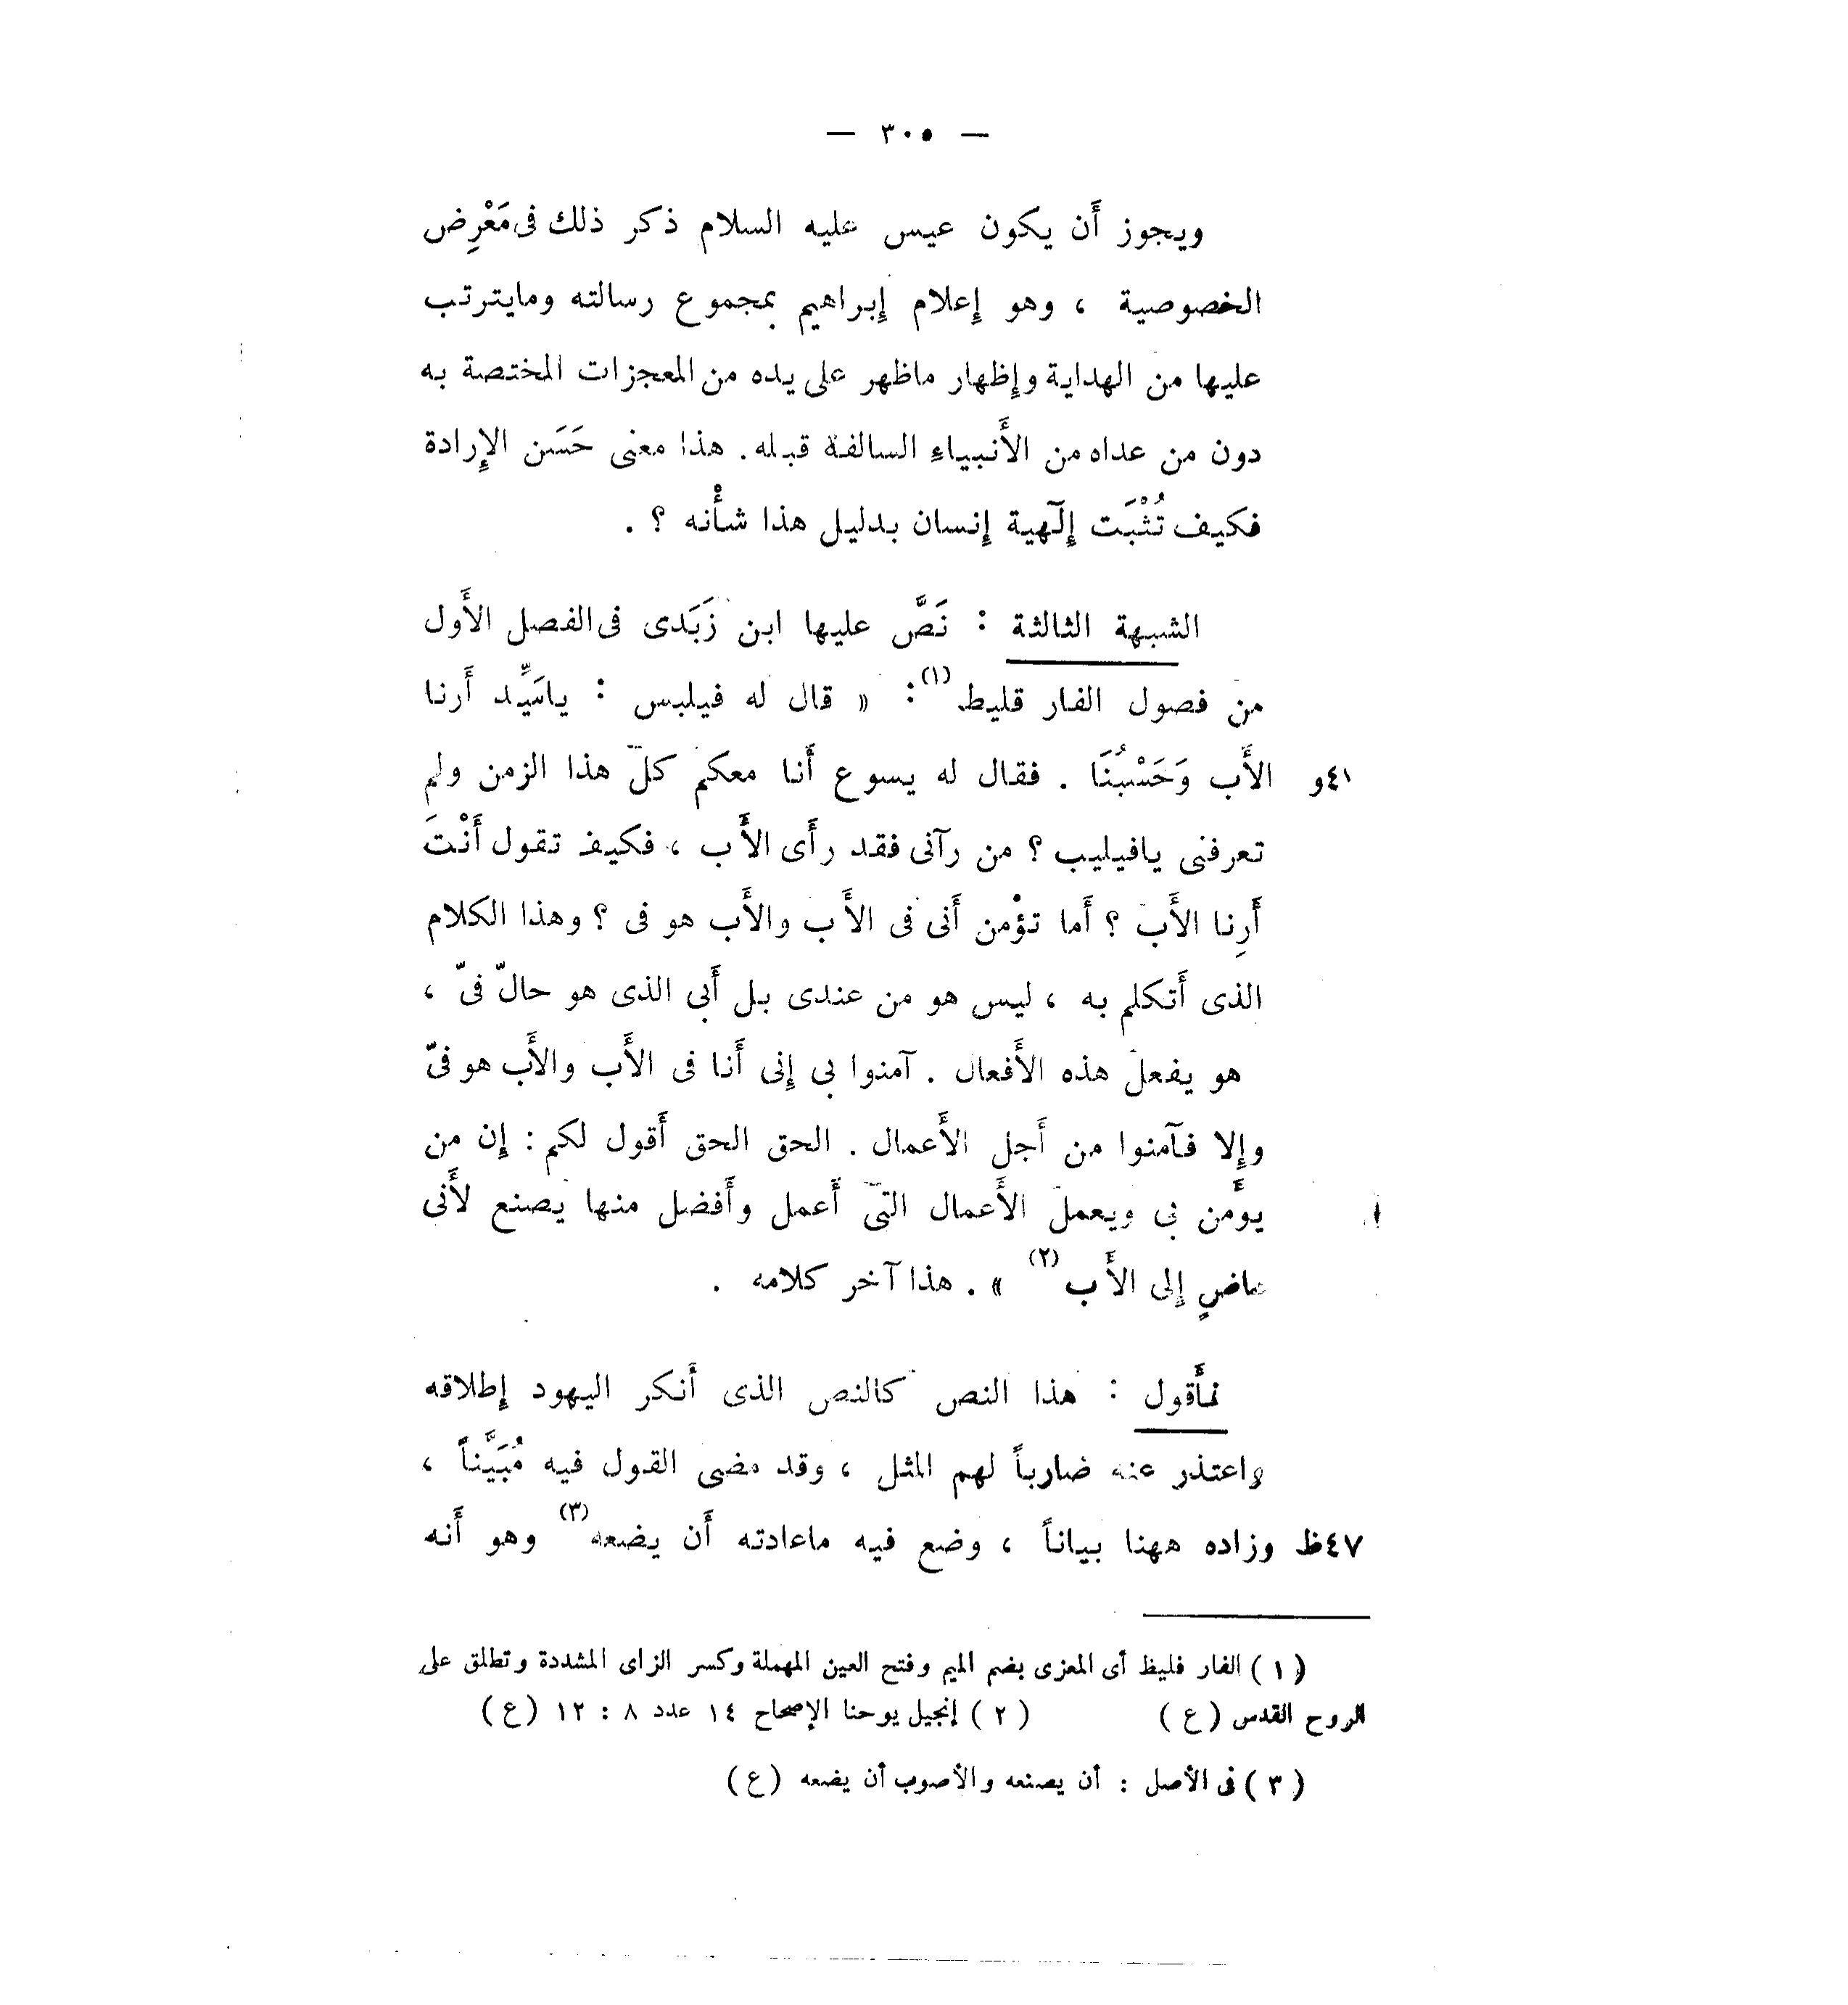 — ٣٠٥ —
ويجوز أَن يكون عيسى عليه السلام ذكر ذلك فى مَعْرِض
الخصوصية ، وهو إعلام إبراهيم بمجموع رسالته ومايترتب
عليها من الهداية وإظهار ماظهر على يده من المعجزات المختصة به
دون من عداه من الأَنبياءِ السالفة قبله . هذا معنى حَسَن الإرادة
فكيف تُثْبَت إلٓهية إنسان بدليل هذا شأْنه ؟ .
الشبهة الثالثة : نَصَّ عليها ابن زَبَدى فى الفصل الأَول
من فصول الفار قليط (١) : « قال له فيلبس : ياسَيِّد أَرنا
٤١و الأَب وَحَسْبُنَا . فقال له يسوع أَنا معكم كلّ هذا الزمن ولم
تعرفنى يافيليب ؟ من رآنى فقد رأَى الأَب ، فكيف تقول أَنْتَ
أَرِنا الأَب ؟ أَما تؤْمن أَنى فى الأَب والأَب هو فى ؟ وهذا الكلام
الذى أَتكلم به ، ليس هو من عندى بل أَبى الذى هو حالّ فىّ ،
هو يفعل هذه الأَفعال . آمنوا بى إنى أَنا فى الأَب والأَب هو فىّ
وإلا فآمنوا من أَجل الأَعمال . الحق الحق أَقول لكم : إن من
يؤمن بى ويعمل الأَعمال التى أَعمل وأَفضل منها يصنع لأَنى
ماضٍ إلى الأَب (٢) » . هذا آخر كلامه .
فأَقول : هذا النص كالنص الذى أَنكر اليهود إطلاقه
واعتذر عنه ضارباً لهم المثل ، وقد مضى القول فيه مُبَيَّناً ،
٤٧ظ وزاده ههنا بياناً ، وضع فيه ماعادته أَن يضعه (٣) وهو أَنه
( ١ ) الفار قليط أى المعزى بضم الميم وفتح العين المهملة وكسر الزاى المشددة وتطلق على
الروح القدس ( ع ) ( ٢ ) إنجيل يوحنا الإصحاح ١٤ عدد ٨ : ١٢ ( ع )
( ٣ ) فى الأصل : أن يصنعه والأصوب أن يضعه ( ع )